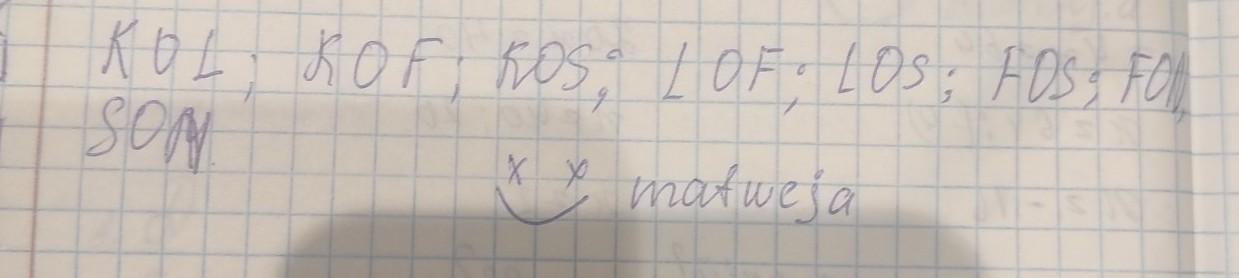 KOL; KOF; KOS; LOF; LOS; FOS; FON,
SON.
x x matweja